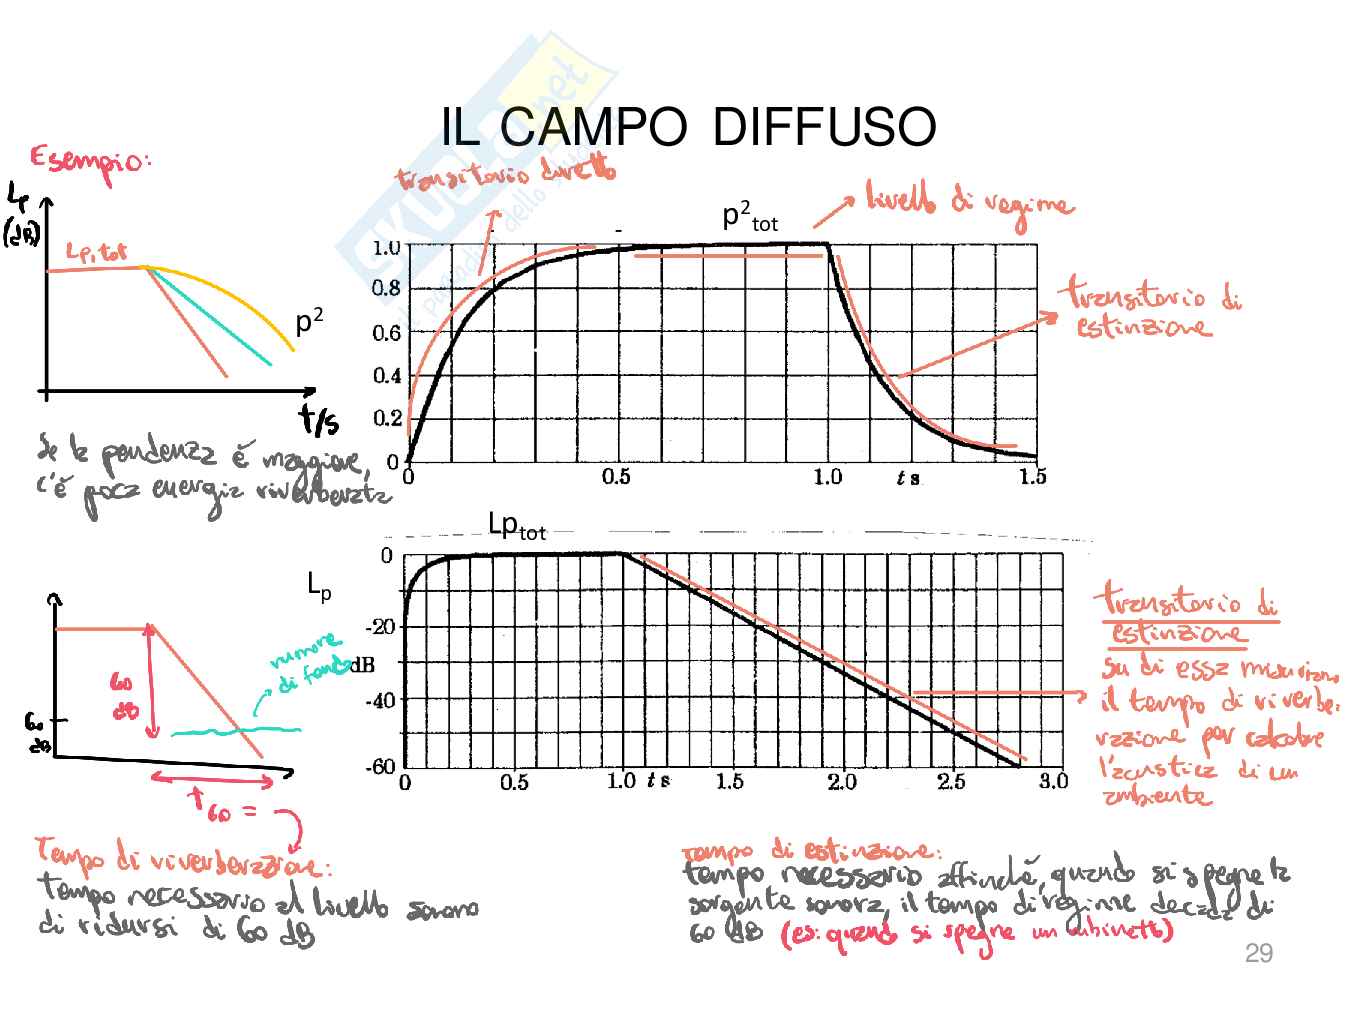 IL CAMPO DIFFUSO
SKUOLA.net
paradiso dello
Esempio:
Lp
(dB)
Lp,tot
p²
t/s
Se la pendenza è maggiore,
c'è poca energia riverberata
transitorio diretto
p²tot
livello di regime
transitorio di
estinzione
1.0
0.8
0.6
0.4
0.2
0
0 0.5 1.0 t s 1.5
Lptot
Lp
0
-20
dB
-40
-60
0 0.5 1.0 t s 1.5 2.0 2.5 3.0
60
dB
60
dB
rumore
di fondo
t60 =
transitorio di
estinzione
su di essa misuriamo
il tempo di riverbe-
razione per calcolare
l'acustica di un
ambiente
Tempo di riverberazione:
tempo necessario al livello sonoro
di ridursi di 60 dB
tempo di estinzione:
tempo necessario affinché, quando si spegne la
sorgente sonora, il tempo di regime decada di
60 dB (es: quando si spegne un rubinetto)
29